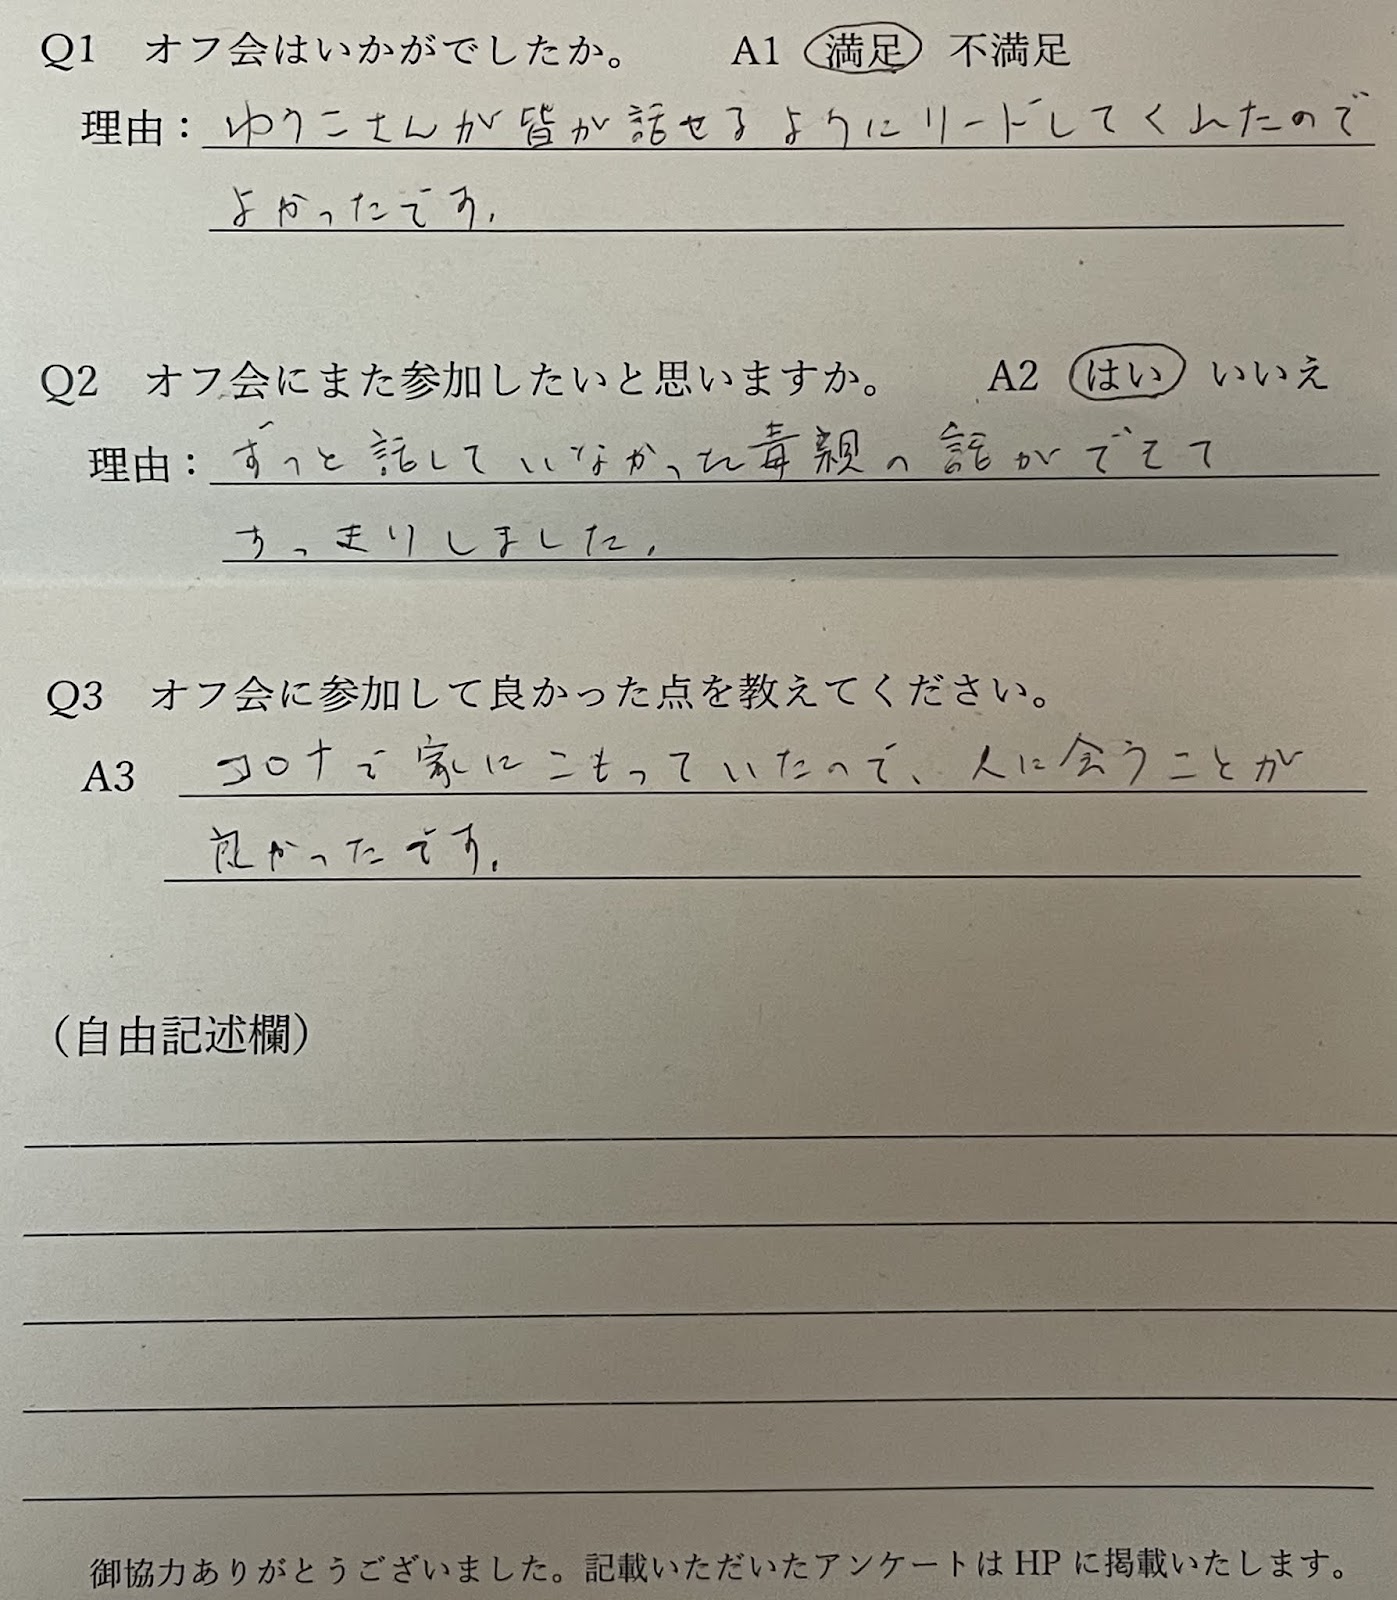 Q1 オフ会はいかがでしたか。 A1 満足 不満足
理由：ゆうこさんが皆が話せるようにリードしてくれたので
よかったです。
Q2 オフ会にまた参加したいと思いますか。 A2 はい いいえ
理由：ずっと話していなかった毒親の話がでてて
すっきりしました。
Q3 オフ会に参加して良かった点を教えてください。
A3 コロナで家にこもっていたので、人に会うことが
良かったです。
（自由記述欄）
御協力ありがとうございました。記載いただいたアンケートは HP に掲載いたします。